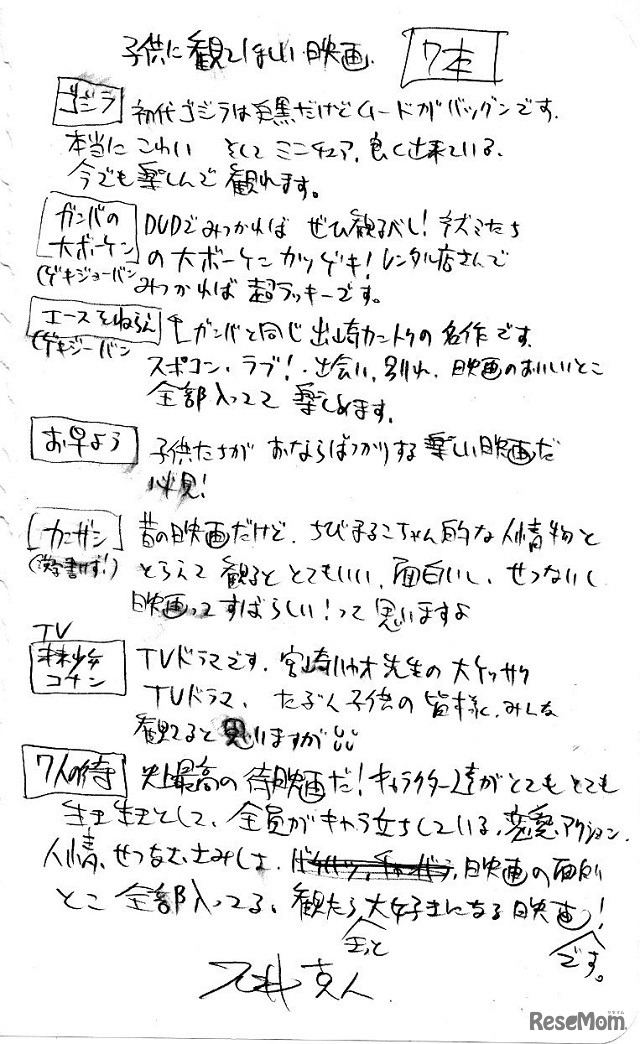 子供に観てほしい映画 7本
ゴジラ 初代ゴジラは白黒だけどムードがバツグンです.
本当に こわい そして ミニチュア, 良く出来ている.
今でも 楽しんで 観れます。
ガンバの大ボーケン DVDでみつかれば ぜひ観るべし! ネズミたち
(ゲキジョーバン の 大ボーケン カツゲキ! レンタル店さんで
みつかれば 超ラッキーです。
エースをねらえ ガンバと同じ 出崎カントクの 名作です.
(ゲキジーバン スポコン, ラブ! 出会い, 別れ. 映画のおいしいとこ
全部入ってて 楽しめます.
お早よう 子供たちが おならばっかりする 楽しい映画だ
必見!
カンザシ 昔の映画だけど. ちびまるこちゃん的な 人情物と
(漢字書けず!) とらえて 観ると とてもいい, 面白いし、せつないし
映画って すばらしい! って 思いますよ
TV
未来少年コナン TVドラマです. 宮崎ハヤオ先生の 大ケッサク
TVドラマ. たぶん 子供の 皆様も みんな
観てると 思いますが
7人の侍 史上最高の 侍映画だ! キャラクター達がとてもとても
生き生きとして, 全員が キャラ立ちしている, 恋愛, アクション
人情, せつなさ, かなしさ, 映画の面白い
とこ 全部 入ってる, 観たら きっと 大好きになる 映画です。!
石井克人
リセマム
ReseMom.